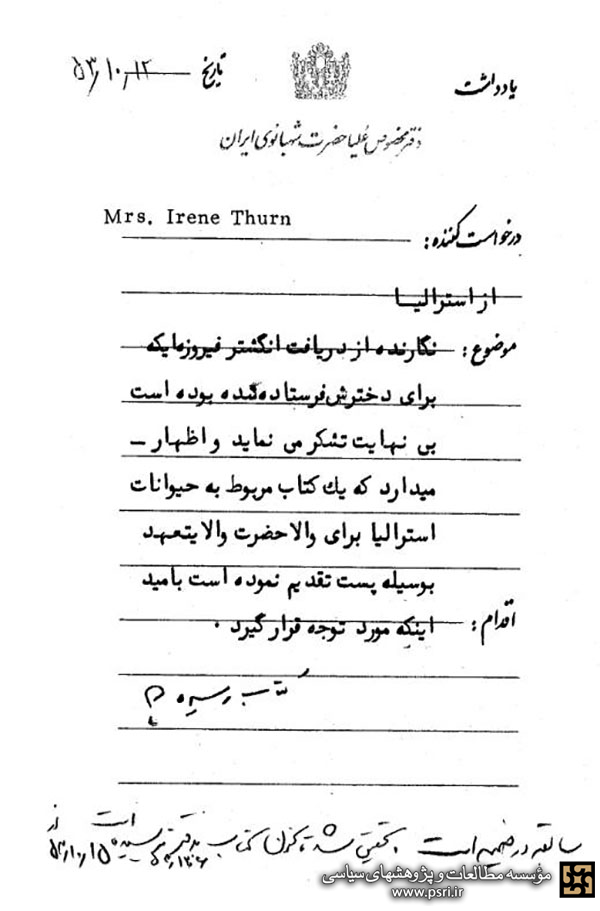 یادداشت
تاریخ ۵۳٫۱۰٫۱۲
دفتر مخصوص علیاحضرت شهبانوی ایران
درخواست کننده: Mrs. Irene Thurn
از استرالیا
موضوع: نگارنده از دریافت انگشتر فیروزه‌ایکه
برای دخترش فرستاده شده بوده است
بی نهایت تشکر می نماید و اظهار –
میدارد که یك کتاب مربوط به حیوانات
استرالیا برای والاحضرت والایتعهد
بوسیله پست تقدیم نموده است بامید
اقدام: اینکه مورد توجه قرار گیرد .
کتاب رسیده ؟
سابقه در ضمیمه است . تحقیق شد تاکنون کتاب بدفتر نرسیده است
مؤسسه مطالعات و پژوهشهای سیاسی
www.psri.ir